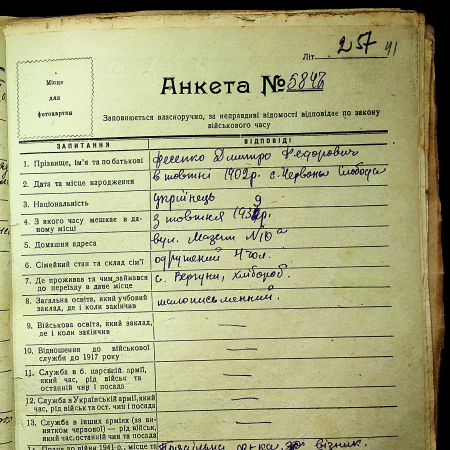 Літ. 257 41
Місце
для
фотокартки
Анкета № 5846
Заповнюється власноручно, за неправдиві відомості відповідає по закону
військового часу
ЗАПИТАННЯ ВІДПОВІДІ
1. Прізвище, ім'я та по батькові Фесенко Дмитро Федорович
2. Дата та місце народження в жовтні 1902 р. с. Червона Слобода
3. Національність українець
4. З якого часу мешкає в да-
ному місці З жовтня р.
5. Домашня адреса вул. № 10а
6. Сімейний стан та склад сім'ї одружений 4 чол.
7. Де проживав та чим займався
до переїзду в дане місце с. Вергуни, хлібороб.
8. Загальна освіта, який учбовий
заклад, де і коли закінчив малописьменний.
9. Військова освіта, який заклад,
де і коли закінчив —
10. Відношення до військової
служби до 1917 року —
11. Служба в б. царській армії,
який час, рід військ та
останній чин і посада —
12. Служба в Українській армії, який
час, рід військ та ост. чин і посада —
13. Служба в інших арміях (за ви-
нятком червоної) — рід військ,
який час, останній чин та посада —
до війни 1941 о., місце та візник.